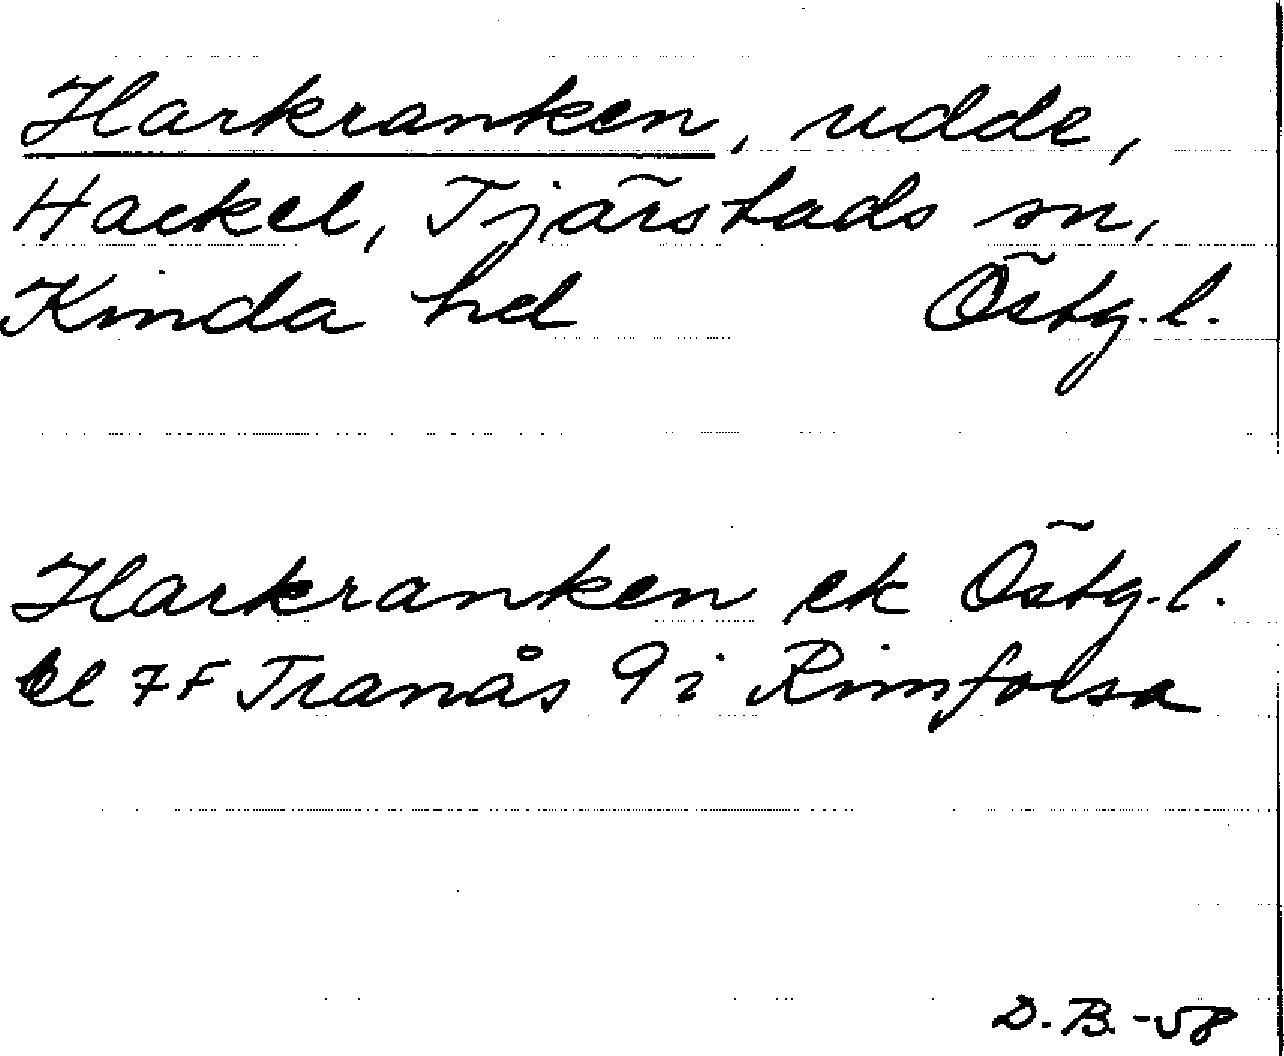 Harkranken, udde,
Hackel, Tjärstads sn,
Kinda hd Östg.l.
Harkranken ek Östg.l.
bl 7F Tranås 9i Rimforsa
D.B.-58